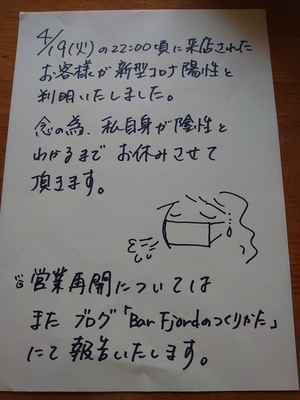 4/19(火)の22:00頃に来店された
お客様が新型コロナ陽性と
判明いたしました。
念の為、私自身が陰性と
わかるまでお休みさせて
頂きます。
営業再開については
またブログ「Bar Fjordのつくりかた」
にて報告いたします。